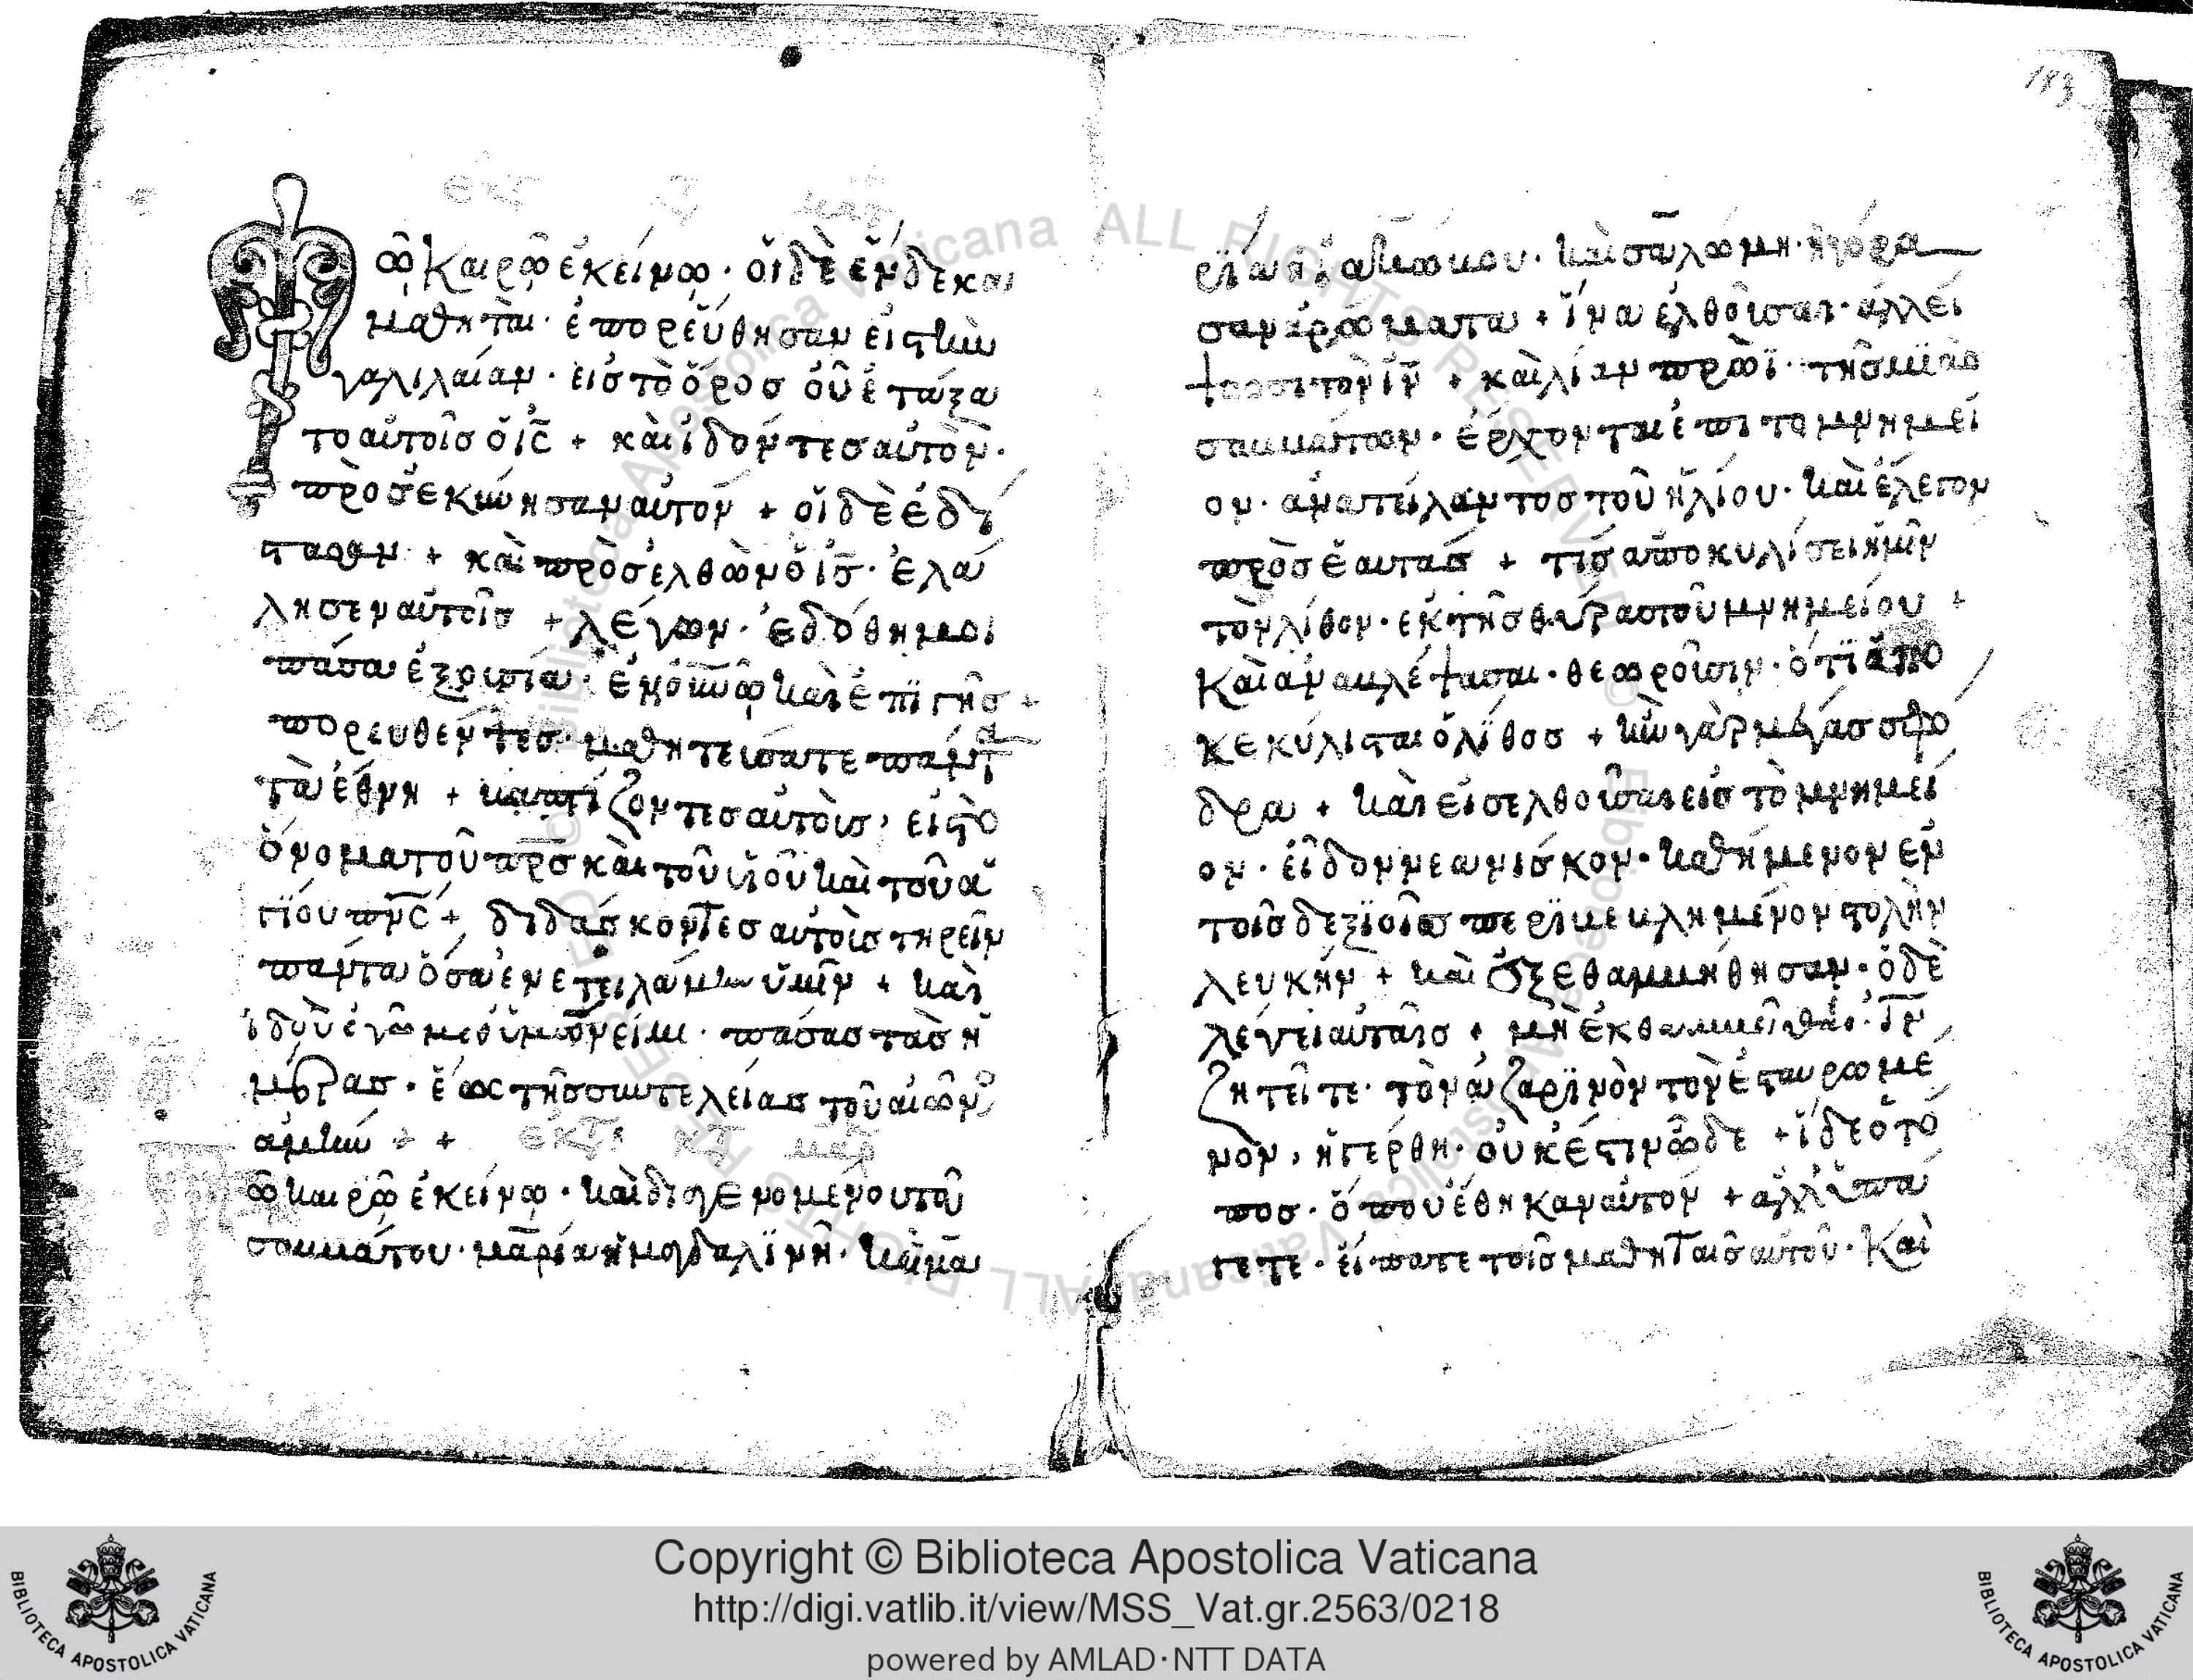 Τῶ καιρῶ ἐκείνω · οἱ δὲ ἕνδεκα
μαθηταὶ · ἐπορεύθησαν εἰς τὴν
γαλιλαίαν · εἰς τὸ ὄρος οὗ ἐτάξα
το αὐτοῖς ὁ ἰς̅ + καὶ ἰδόντες αὐτὸν ·
προσεκύνησαν αὐτόν + οἱ δὲ ἐδί
στασαν + καὶ προσελθὼν ὁ ἰς̅ · ἐλά
λησεν αὐτοῖς + λέγων · ἐδόθη μοι
πάσα ἐξουσία · ἐν οὐνω καὶ ἐπὶ γῆς +
πορευθέντες · μαθητεύσατε πάντα
τὰ ἔθνη + βαπτίζοντες αὐτοὺς · εἰς τὸ
ὄνομα τοῦ πρς̅ καὶ τοῦ υἱοῦ καὶ τοῦ ἁ
γίου πνς̅ + διδάσκοντες αὐτοὺς τηρεῖν
πάντα ὅσα ἐνετειλάμην ὑμῖν + καὶ
ἰδοὺ ἐγὼ μεθ ὑμῶν εἰμι · πάσας τὰς ἡ
μέρας · ἕως τῆς συντελείας τοῦ αἰῶνος
ἀμήν + +
ῶ καιρῶ ἐκείνω · καὶ διαγενομένου τοῦ
σαμμάτου · μαρία ἡ μαγδαλϊνὴ · καὶ μα
183
ρία ἡ ϊακώβου · καὶ σαλώμη · ἠγόρα
σαν ἀρώματα + ἵνα ἐλθοῦσαι · ἀλλεί
ψωσι τὸν ἰν̅ + καὶ λίαν πρωῒ · τῆς μϊὰς
σαμμάτων · ἔρχονται ἐπι το μνημεί
ον · ἀνατείλαντος τοῦ ἡλίου · καὶ ἔλεγον
πρὸς ἑαυτάς + τίς ἀποκυλίσει ἡμῖν
τὸν λίθον · ἐκ τῆς θύρας τοῦ μνημείου +
καὶ ἀναμλέψασαι · θεωροῦσιν · ὅτϊ ἀπο
κεκύλισται ὁ λΐθος + ἦν γὰρ μέγας σφό
δρα + καὶ εἰσελθοῦσαι εἰς τὸ μνημεί
ον · εἶδον νεανίσκον · καθήμενον ἐν
τοῖς δεξϊοῖς περϊμεμλημένον στολὴν
λευκήν + καὶ ἐξεθαμμήθησαν · ὁ δὲ
λέγει αὐταῖς + μὴ ἐκθαμμεῖσθαι · ἰν̅
ζητεῖτε · τὸν ναζαρϊνὸν τὸν ἐσταυρωμέ
νον, ἠγέρθη · οὐκ ἔστιν ὧδε + ἴδε ὁ τό
πος · ὅπου ἔθηκαν αὐτόν + ἀλλὰ ὑπά
γετε · εἴπατε τοῖς μαθηταῖς αὐτοῦ · καὶ
Copyright © Biblioteca Apostolica Vaticana
http://digi.vatlib.it/view/MSS_Vat.gr.2563/0218
powered by AMLAD·NTT DATA
BIBLIOTECA APOSTOLICA VATICANA
BIBLIOTECA APOSTOLICA VATICANA